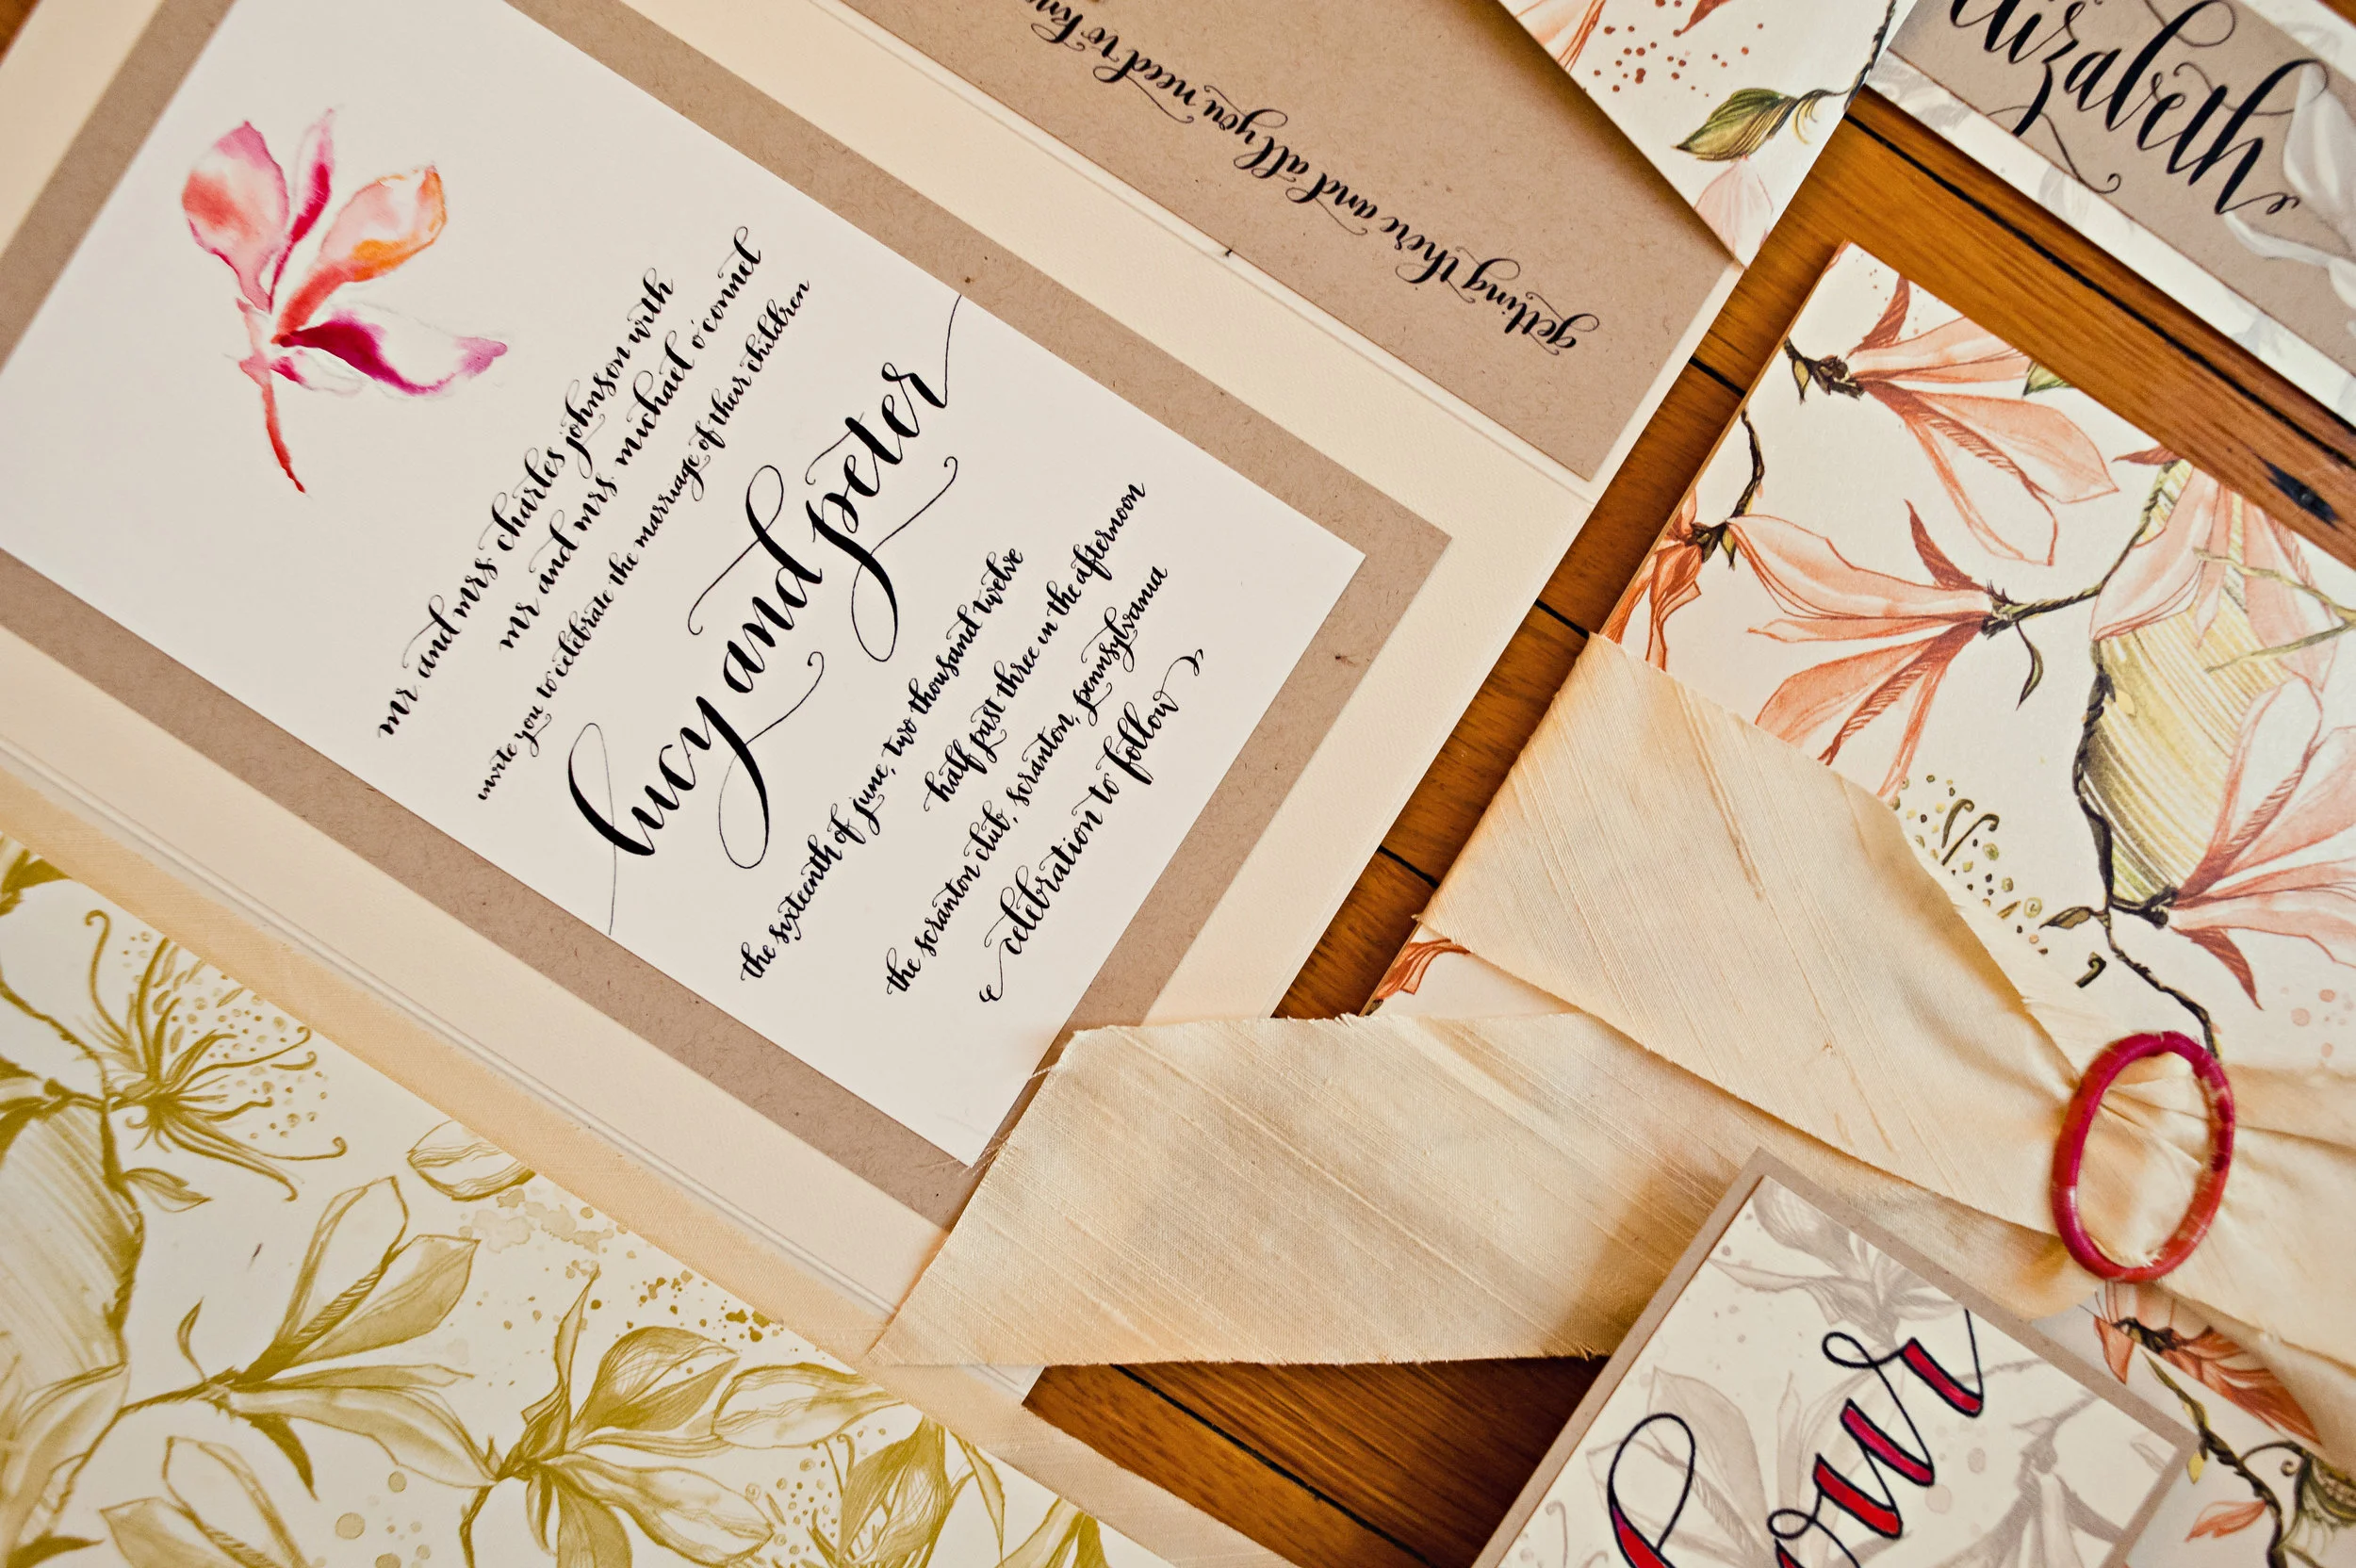 mr and mrs charles johnson with
mr and mrs michael o'connel
invite you to celebrate the marriage of their children
lucy and peter
the sixteenth of june, two thousand twelve
half past three in the afternoon
the scranton club, scranton, pennsylvania
celebration to follow
getting there and all you need to kn
elizabeth
four